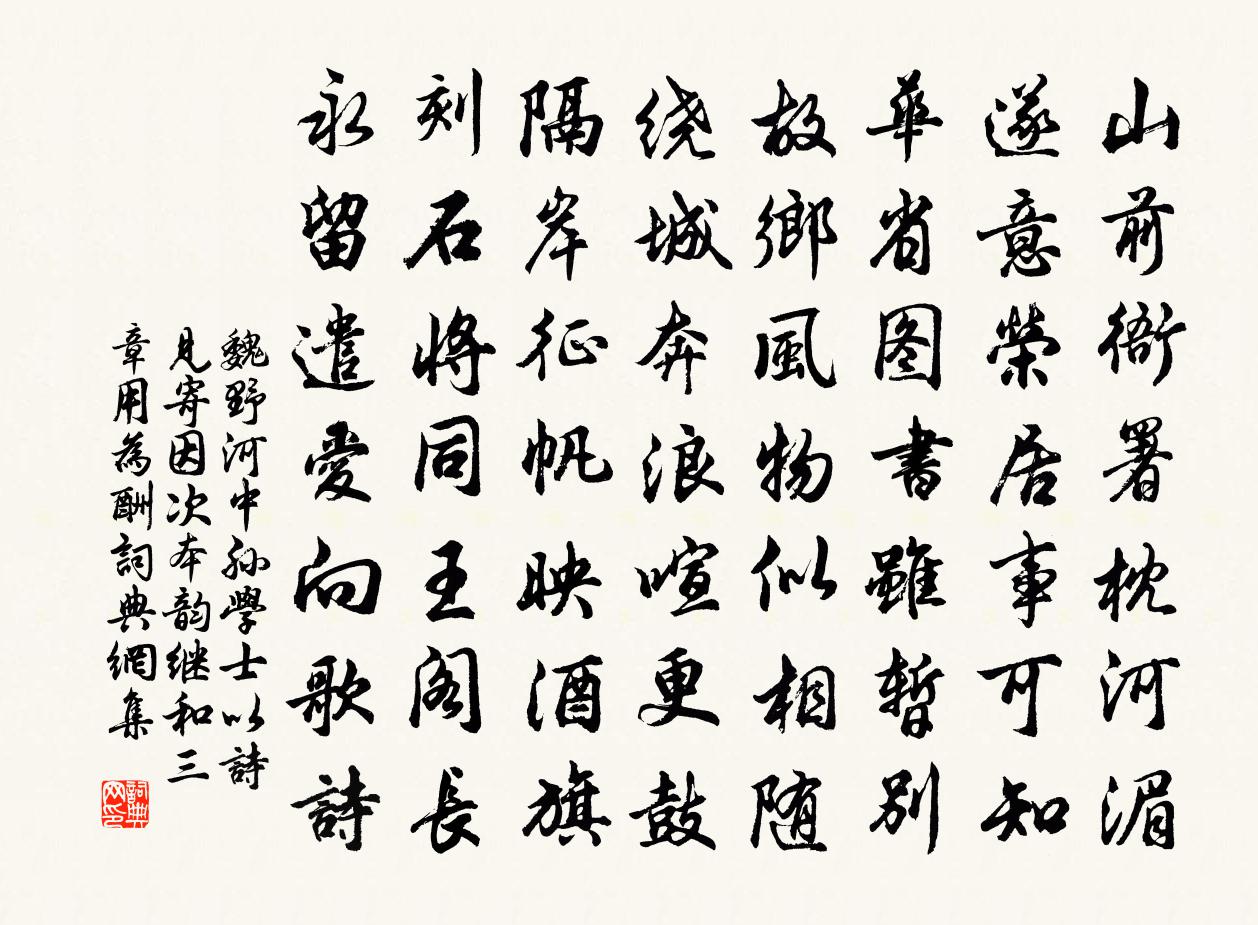 山前衙署枕河湄
遂意榮居事可知
華省图書雖暫別
故鄉風物似相随
绕城奔浪喧更鼓
隔岸征帆映酒旗
刻石將同王阁長
永留遺愛向歌詩
魏野河中孙學士以詩
見寄因次本韵继和三
章用為酬詞典網集
詞典网印